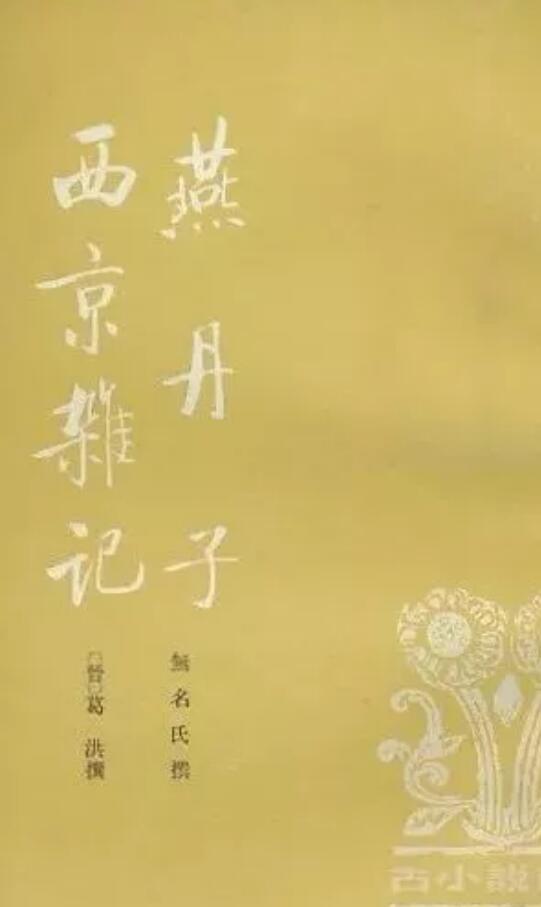 燕丹子
無名氏撰
西京雜记
〔晉〕葛洪撰
古小説